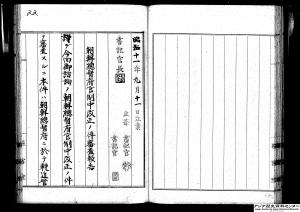 22
昭和十一年九月十一日立案
書記官長
主査 書記官
書記官
朝鮮總督府官制中改正ノ件審査報告
謹テ今回御諮詢ノ朝鮮總督府官制中改正ノ件
ヲ審査スルニ本件ハ朝鮮總督府ニ於テ
アジア歴史資料センター